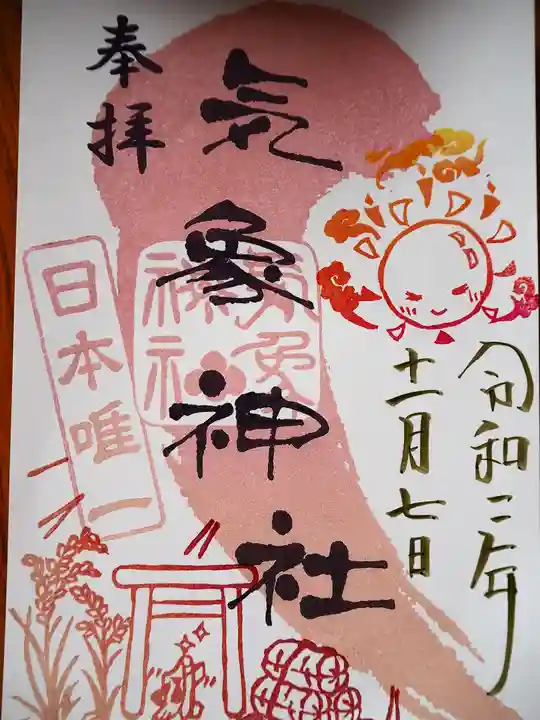 令和三年
十一月七日
気象神社
奉拝
日本唯一
気象
神社